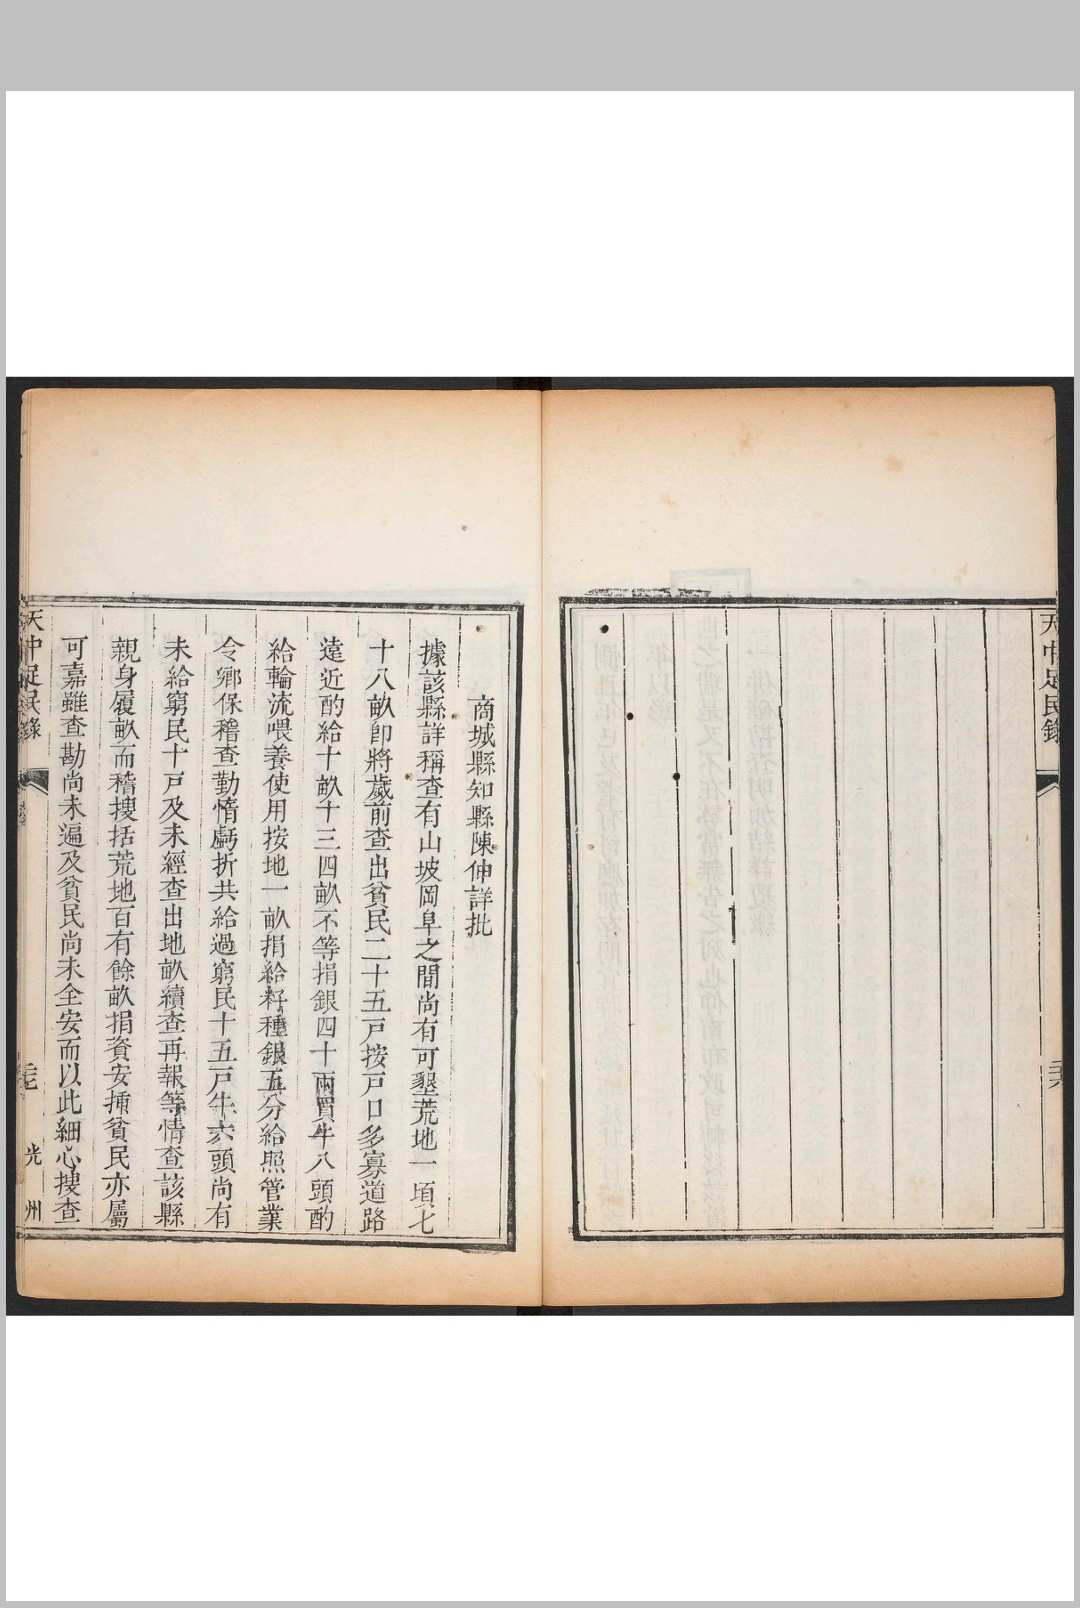 天中足民錄
商城縣知縣陳伸詳批
據該縣詳稱查有山坡岡阜之間尚有可墾荒地一頃七
十八畝卽將歲前查出貧民二十五戸按戸口多寡道路
遠近酌給十畝十三四畝不等捐銀四十兩買牛八頭酌
給輪流喂養使用按地一畝捐給籽種銀五分給照管業
令鄉保稽查勤惰虧折共給過窮民十五戸牛六頭尚有
未給窮民十戸及未經查出地畝續查再報等情查該縣
親身履畝而稽捜括荒地百有餘畝捐資安揷貧民亦屬
可嘉雖查勘尚未遍及貧民尚未全安而以此細心捜查
天中足民錄
光州